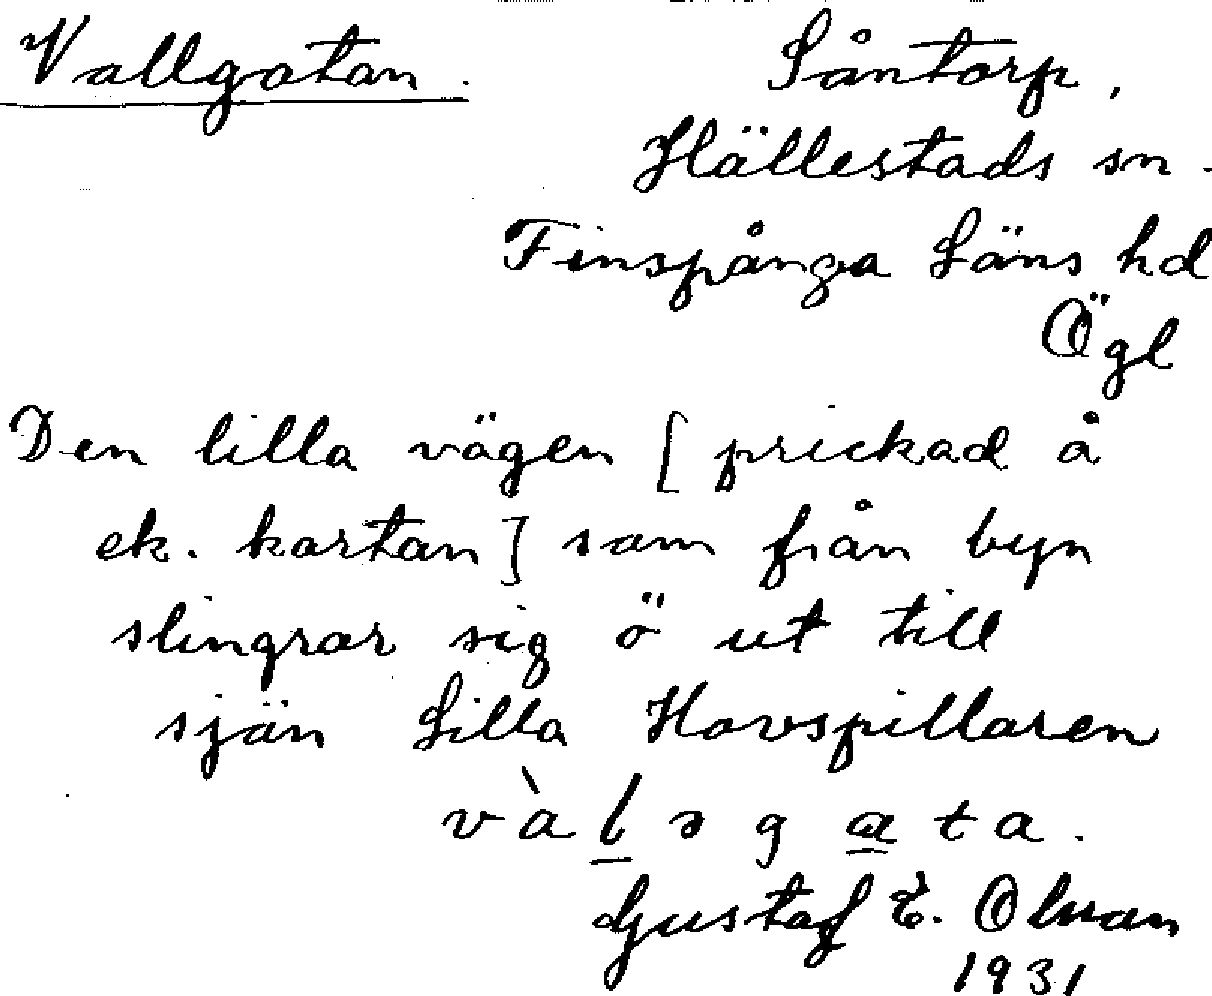 Vallgatan. Såntorp,
Hällestads sn.
Finspånga Läns hd
Ögl
Den lilla vägen [prickad å
ek. kartan] som från byn
slingrar sig ö ut till
sjön Lilla Hovspillaren
vàlsgata.
Gustaf E. Olsson
1931